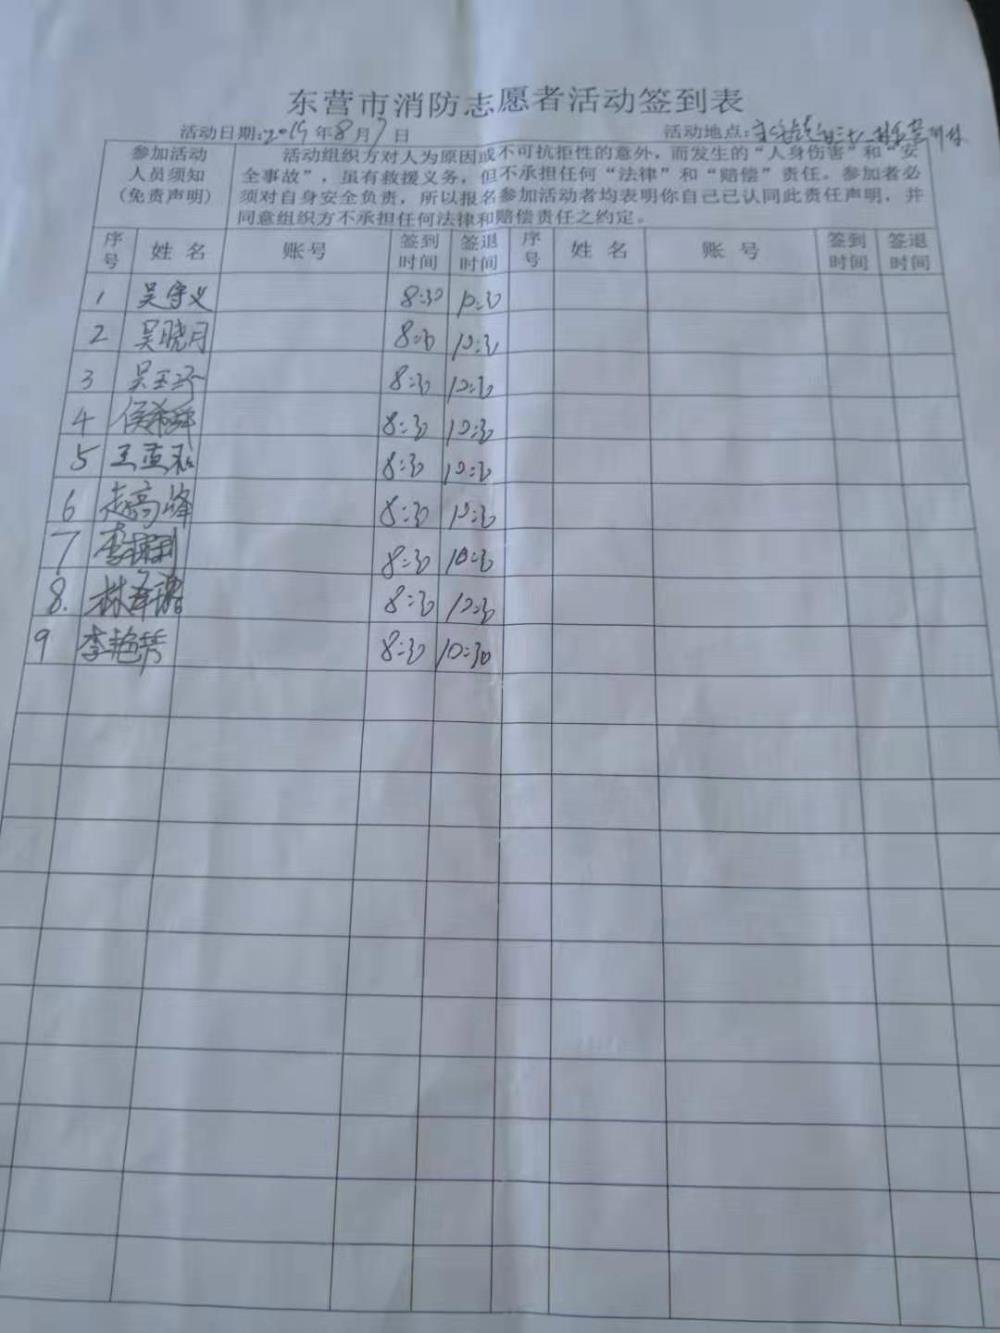 东营市消防志愿者活动签到表
活动日期:2019年8月7日 活动地点:
参加活动人员须知(免责声明)
活动组织方对人为原因或不可抗拒性的意外，而发生的“人身伤害”和“安
全事故”，虽有救援义务，但不承担任何“法律”和“赔偿”责任。参加者必
须对自身安全负责，所以报名参加活动者均表明你自己已认同此责任声明，并
同意组织方不承担任何法律和赔偿责任之约定。
序号 姓名 账号 签到时间 签退时间 序号 姓名 账号 签到时间 签退时间
1 吴守义 8:30 10:30
2 吴晓月 8:30 10:30
3 8:30 10:30
4 8:30 10:30
5 8:30 10:30
6 赵高峰 8:30 10:30
7 8:30 10:30
8. 8:30 10:30
9 李艳 8:30 10:30